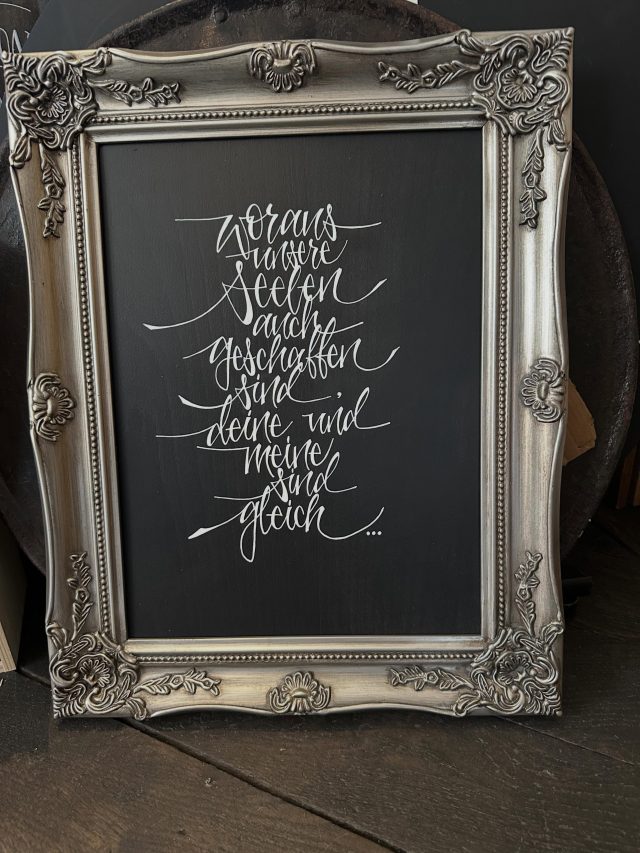 woraus
unsere
Seelen
auch
geschaffen
sind,
deine und
meine
sind
gleich ...